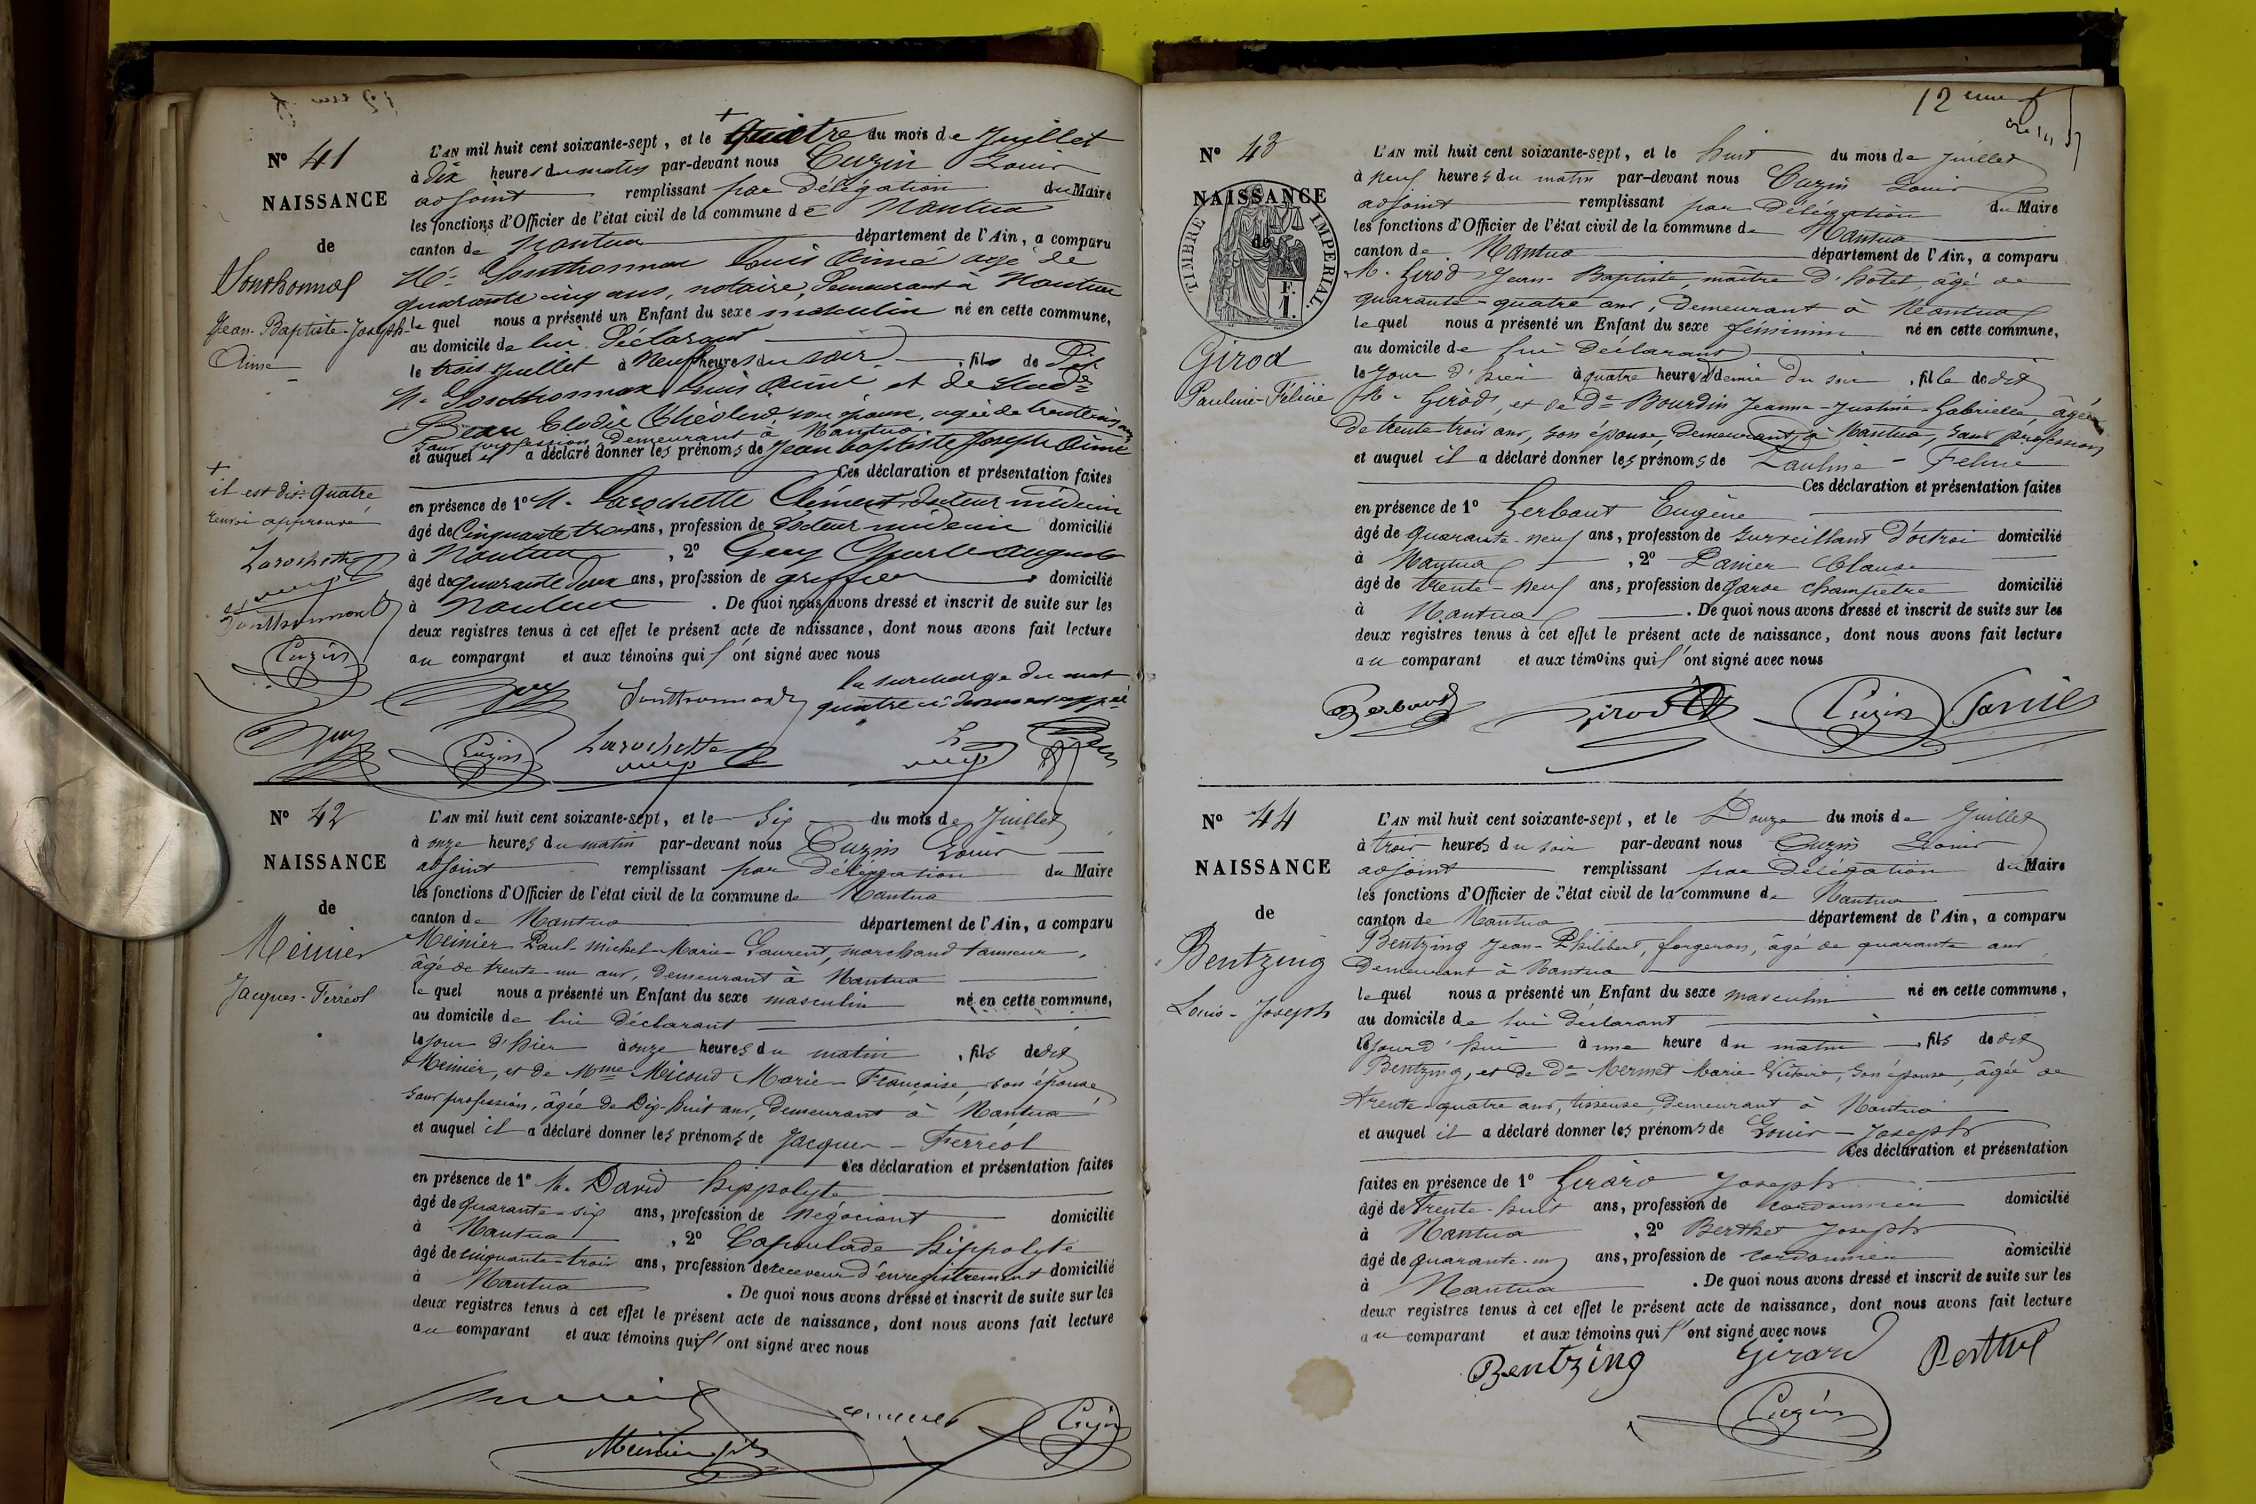 N° 41
NAISSANCE
de
Sonthonnax
Jean-Baptiste-Joseph-
Aimé
L'AN mil huit cent soixante-sept, et le quatre du mois de Juillet
à dix heures du matin par-devant nous Cuzin Louis
adjoint remplissant par délégation du Maire
les fonctions d'Officier de l'état civil de la commune de Nantua
canton de Nantua département de l'Ain, a comparu
Mr. Sonthonnax Louis Aimé agé de
quarante cinq ans, notaire, demeurant à Nantua
lequel nous a présenté un Enfant du sexe masculin né en cette commune,
au domicile de lui Déclarant
le trois juillet à Neuf heures du soir, fils de dit
M. Sonthonnax Louis Aimé et de
Elodie son épouse, agée de trente
sans profession, demeurant à Nantua
et auquel il a déclaré donner les prénoms de Jean baptiste Joseph Aimé
Ces déclaration et présentation faites
en présence de 1° M. Larochette Clément docteur médecin
âgé de Cinquante trois ans, profession de docteur médecin domicilié
à Nantua, 2° Guy Charles auguste
âgé de quarante deux ans, profession de greffier domicilié
à Nantua. De quoi nous avons dressé et inscrit de suite sur les
deux registres tenus à cet effet le présent acte de naissance, dont nous avons fait lecture
au comparant et aux témoins qui l'ont signé avec nous
+
il est dit: Quatre
renvoi approuvé
Larochette
Sonthonnax
Cuzin
la surcharge du mot
quatre
Guy
Sonthonnax
Guy
Cuzin
Larochette
N° 42
NAISSANCE
de
Meinier
Jacques-Ferréol
L'AN mil huit cent soixante-sept, et le Six du mois de Juillet
à onze heures du matin par-devant nous Cuzin Louis
adjoint remplissant par délégation du Maire
les fonctions d'Officier de l'état civil de la commune de Nantua
canton de Nantua département de l'Ain, a comparu
Meinier Paul-Michel-Marie-Laurent, marchand tanneur,
âgé de trente-un ans, demeurant à Nantua
lequel nous a présenté un Enfant du sexe masculin né en cette commune,
au domicile de lui déclarant
le jour d'hier à onze heures du matin, fils de dit
Meinier, et de Mme Micoud Marie-Françoise, son épouse,
sans profession, âgée de Dix-huit ans, demeurant à Nantua
et auquel il a déclaré donner les prénoms de Jacques-Ferréol
Ces déclaration et présentation faites
en présence de 1° M. David hippolyte
âgé de quarante-six ans, profession de négociant domicilié
à Nantua, 2° Capoulade hippolyte
âgé de cinquante-trois ans, profession de receveur d'enregistrement domicilié
à Nantua. De quoi nous avons dressé et inscrit de suite sur les
deux registres tenus à cet effet le présent acte de naissance, dont nous avons fait lecture
au comparant et aux témoins qui l'ont signé avec nous
Meinier fils
Cuzin
12eme f
N° 43
NAISSANCE
de
TIMBRE IMPERIAL.
F.
1.
Girod
Pauline-Félicie
L'AN mil huit cent soixante-sept, et le huit du mois de Juillet
à neuf heures du matin par-devant nous Cuzin Louis
adjoint remplissant par délégation du Maire
les fonctions d'Officier de l'état civil de la commune de Nantua
canton de Nantua département de l'Ain, a comparu
M. Girod Jean-Baptiste, maître d'hôtel, âgé de
quarante-quatre ans, demeurant à Nantua
lequel nous a présenté un Enfant du sexe féminin né en cette commune,
au domicile de lui déclarant
le jour d'hier à quatre heures & demie du soir, fille de dit
M. Girod, et de De Bourdin Jeanne-Justine-Gabrielle, âgée
de trente-trois ans, son épouse, demeurant à Nantua, sans profession
et auquel il a déclaré donner les prénoms de Pauline-Félicie
Ces déclaration et présentation faites
en présence de 1° Gerbaut Eugène
âgé de quarante-neuf ans, profession de surveillant d'octroi domicilié
à Nantua, 2° Panier Claude
âgé de trente-neuf ans, profession de garde champêtre domicilié
à Nantua. De quoi nous avons dressé et inscrit de suite sur les
deux registres tenus à cet effet le présent acte de naissance, dont nous avons fait lecture
au comparant et aux témoins qui l'ont signé avec nous
Gerbaut Girod Cuzin Panier
N° 44
NAISSANCE
de
Bentzing
Louis-Joseph
L'AN mil huit cent soixante-sept, et le Douze du mois de Juillet
à trois heures du soir par-devant nous Cuzin Louis
adjoint remplissant par délégation du Maire
les fonctions d'Officier de l'état civil de la commune de Nantua
canton de Nantua département de l'Ain, a comparu
Bentzing Jean-Philibert, forgeron, âgé de quarante ans
demeurant à Nantua
lequel nous a présenté un Enfant du sexe masculin né en cette commune,
au domicile de lui déclarant
le jourd'hui à une heure du matin, fils de dit
Bentzing, et de De Mermet Marie Victoire, son épouse, âgée de
trente-quatre ans, tisseuse, demeurant à Nantua
et auquel il a déclaré donner les prénoms de Louis-Joseph
Ces déclaration et présentation
faites en présence de 1° Girard Joseph
âgé de trente-huit ans, profession de cordonnier domicilié
à Nantua, 2° Berthet Joseph
âgé de quarante-un ans, profession de cordonnier domicilié
à Nantua. De quoi nous avons dressé et inscrit de suite sur les
deux registres tenus à cet effet le présent acte de naissance, dont nous avons fait lecture
au comparant et aux témoins qui l'ont signé avec nous
Bentzing Girard Berthet
Cuzin